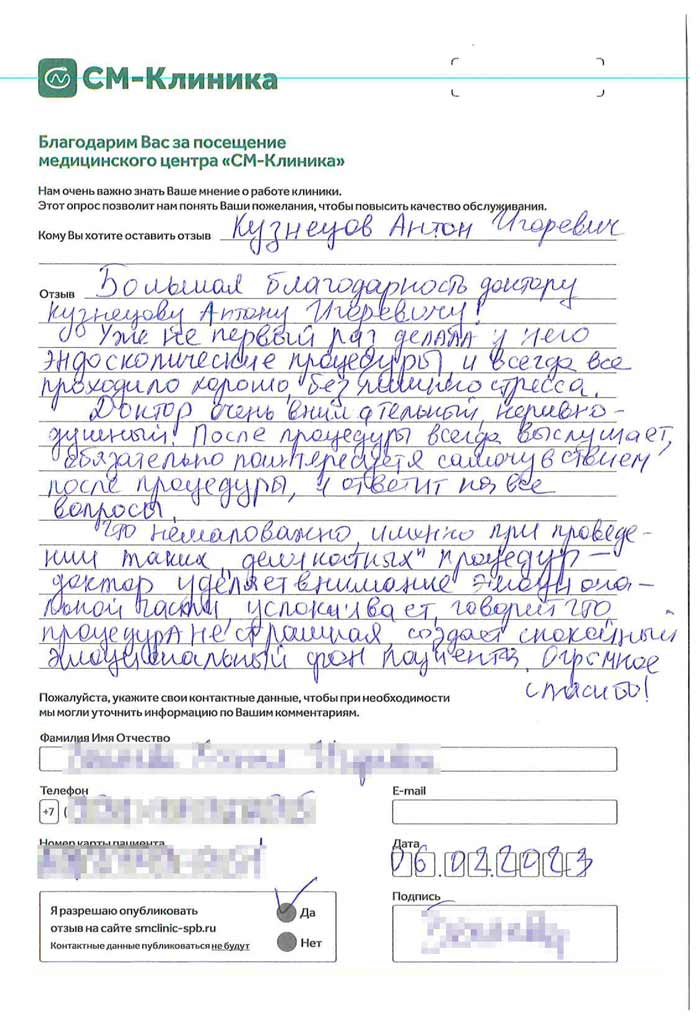 СМ-Клиника
Благодарим Вас за посещение
медицинского центра «СМ-Клиника»
Нам очень важно знать Ваше мнение о работе клиники.
Этот опрос позволит нам понять Ваши пожелания, чтобы повысить качество обслуживания.
Кому Вы хотите оставить отзыв Кузнецов Антон Игоревич
Отзыв Большая благодарность доктору
Кузнецову Антону Игоревичу!
Уже не первый раз делала у него
эндоскопические процедуры, и всегда все
проходило хорошо, без лишнего стресса.
Доктор очень внимательный, неравно-
душный. После процедуры всегда выслушает,
обязательно поинтересуется самочувствием
после процедуры, и ответит на все
вопросы.
Что немаловажно, именно при проведе-
нии таких "деликатных" процедур -
доктор уделяет внимание эмоциона-
льной части, успокаивает, говорит что
процедура не страшная, создает спокойный
эмоциональный фон пациента. Огромное
спасибо!
Пожалуйста, укажите свои контактные данные, чтобы при необходимости
мы могли уточнить информацию по Вашим комментариям.
Фамилия Имя Отчество
Телефон E-mail
+7 (
Номер карты пациента Дата
06.02.2023
Я разрешаю опубликовать Да Подпись
отзыв на сайте smclinic-spb.ru
Контактные данные публиковаться не будут Нет